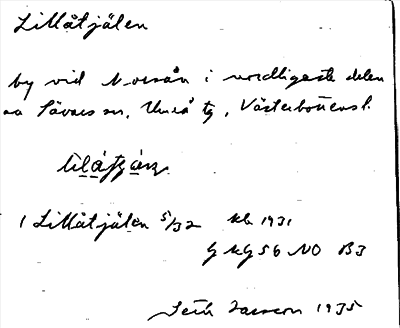 Lillåtjälen
by vid Norsån i nordligaste delen
av Sävars sn, Umeå tg, Västerbottens l.
1 Lillåtjälen 5/32 kb 1931
G kg 56 NO B3
Seth Larsson 1935